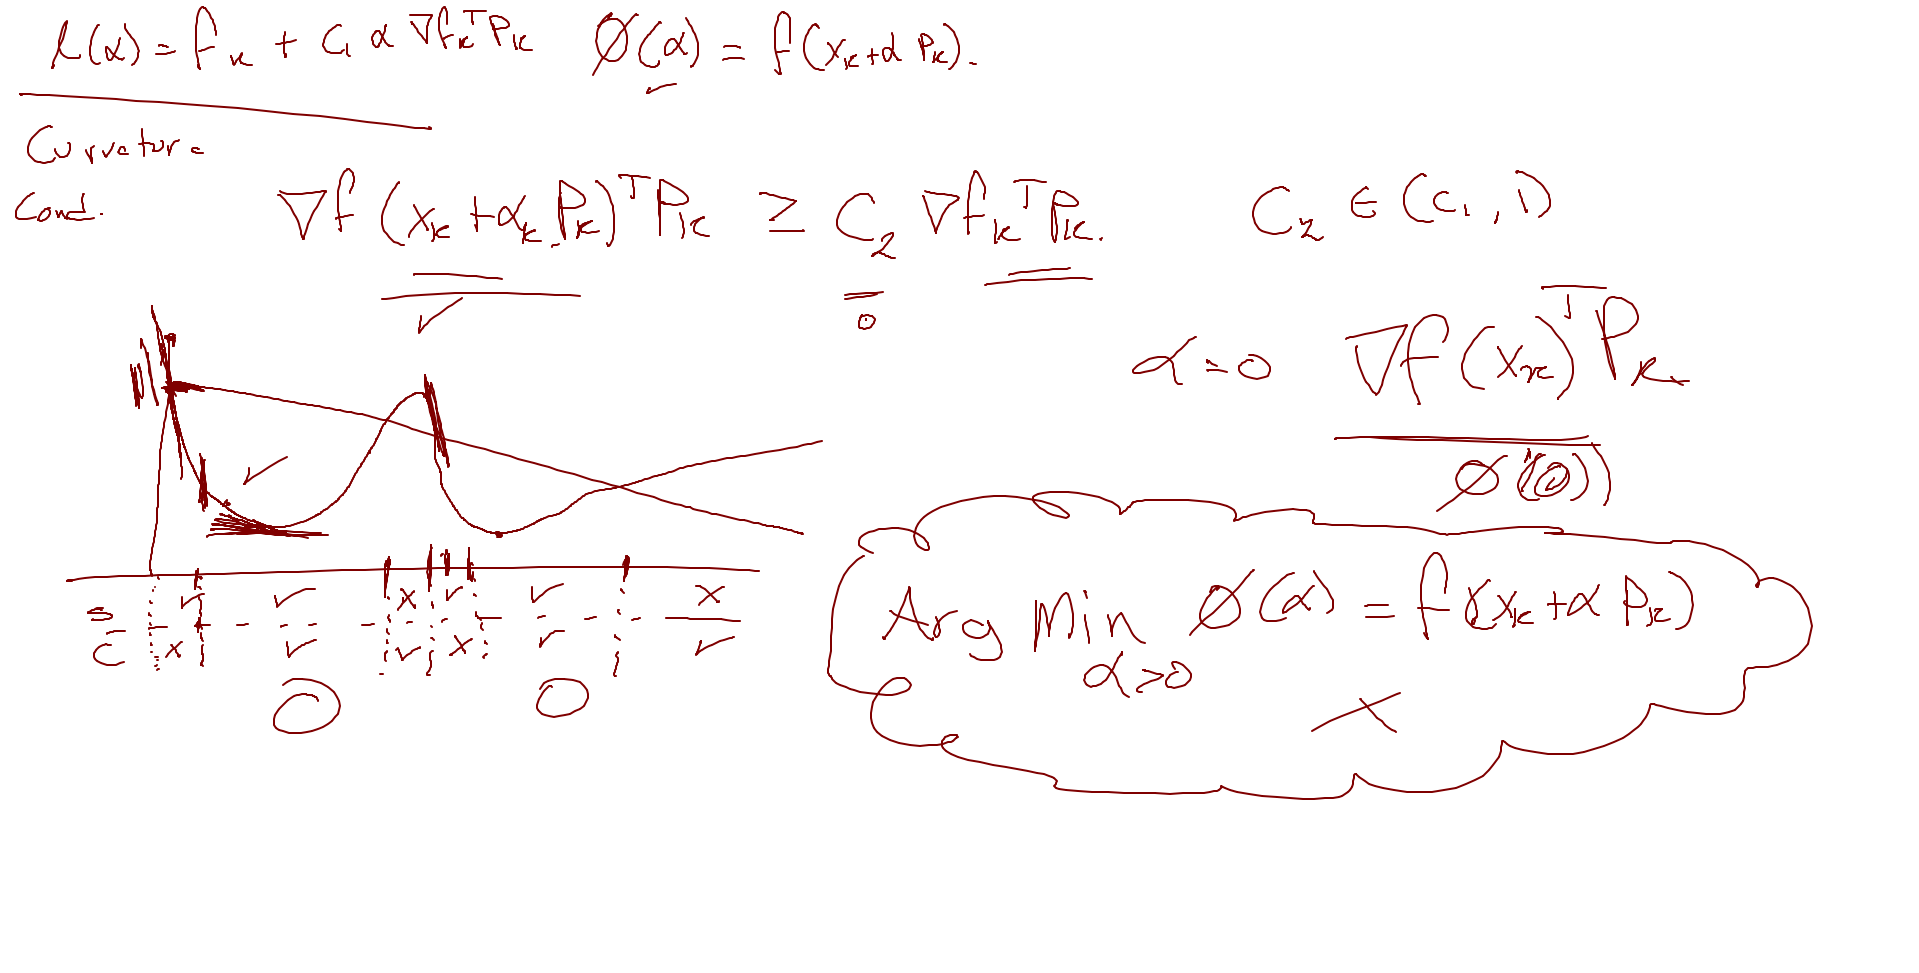 l(α) = f_k + c_1 α ∇f_k^T P_k   Ø(α) = f(x_k + α P_k).
Curvature
Cond.
∇f (x_k + α_k P_k)^T P_k ≥ C_2 ∇f_k^T P_k.   C_2 ∈ (c_1, 1)
0
α = 0   ∇f(x_k)^T P_k
Ø'(0)
S ✓ ✓ x ✓ ✓ x
C x ✓ ✓ x ✓ ✓
Arg Min Ø(α) = f(x_k + α P_k)
α>0
x